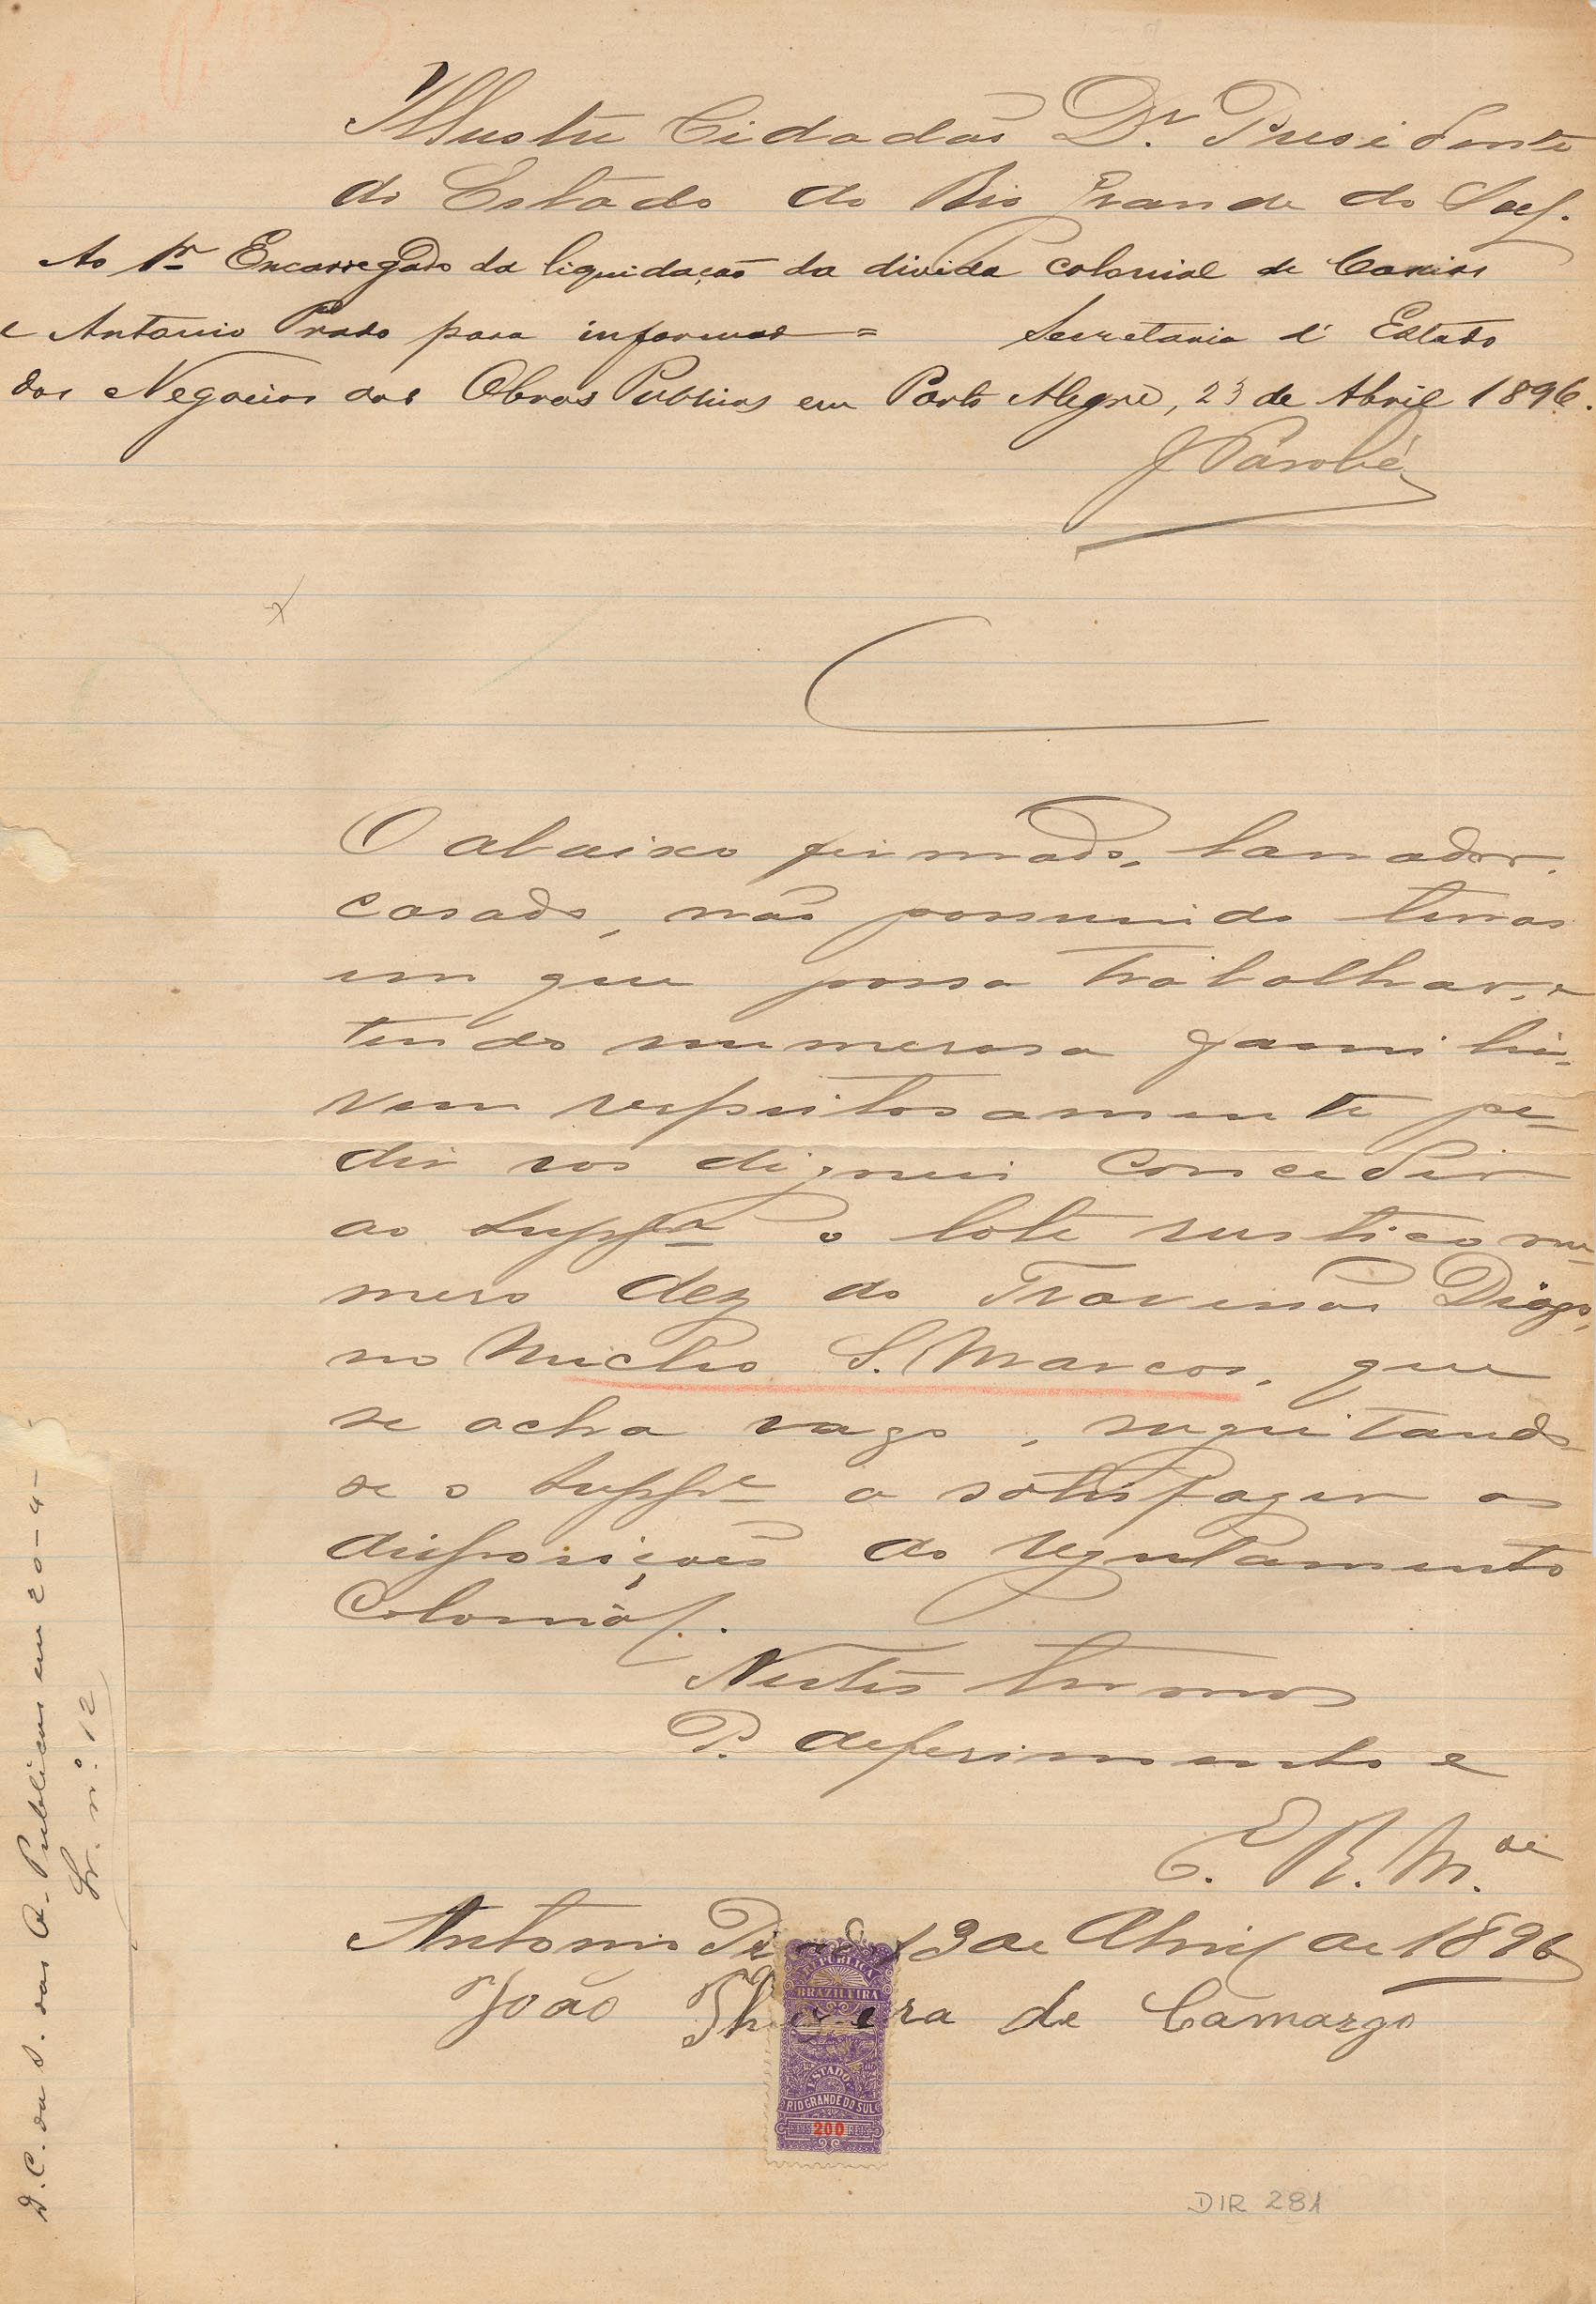 Illustre Cidadão Dr. Presidente
do Estado do Rio Grande do Sul.
Ao 1º Encarregado da liquidação da divida colonial de Caxias
e Antonio Prado para informar = Secretaria d' Estado
dos Negocios das Obras Publicas em Porto Alegre, 23 de Abril 1896.
J Parobé
O abaixo firmado, lavrador,
casado, não possuindo terras
em que possa trabalhar, e
tendo numerosa familia,
vem respeitosamente pe-
dir vos digneis conceder
ao suppe o lote rustico nu-
mero dez do Travessão Diogo,
no Nucleo S. Marcos, que
se acha vago, sugeitando-
se o suppe a satisfazer as
disposições do regulamento
Colonial.
Nestes termos
P. deferimento e
E. R. M.ce
Antonio Prado 13 de Abril de 1896
João de Camargo
REPUBLICA
BRAZILEIRA
ESTADO
RIO GRANDE DO SUL
200 REIS
DIR 281
D. C. da S. das O. Publicas em 20-4-
Pr. nº 12